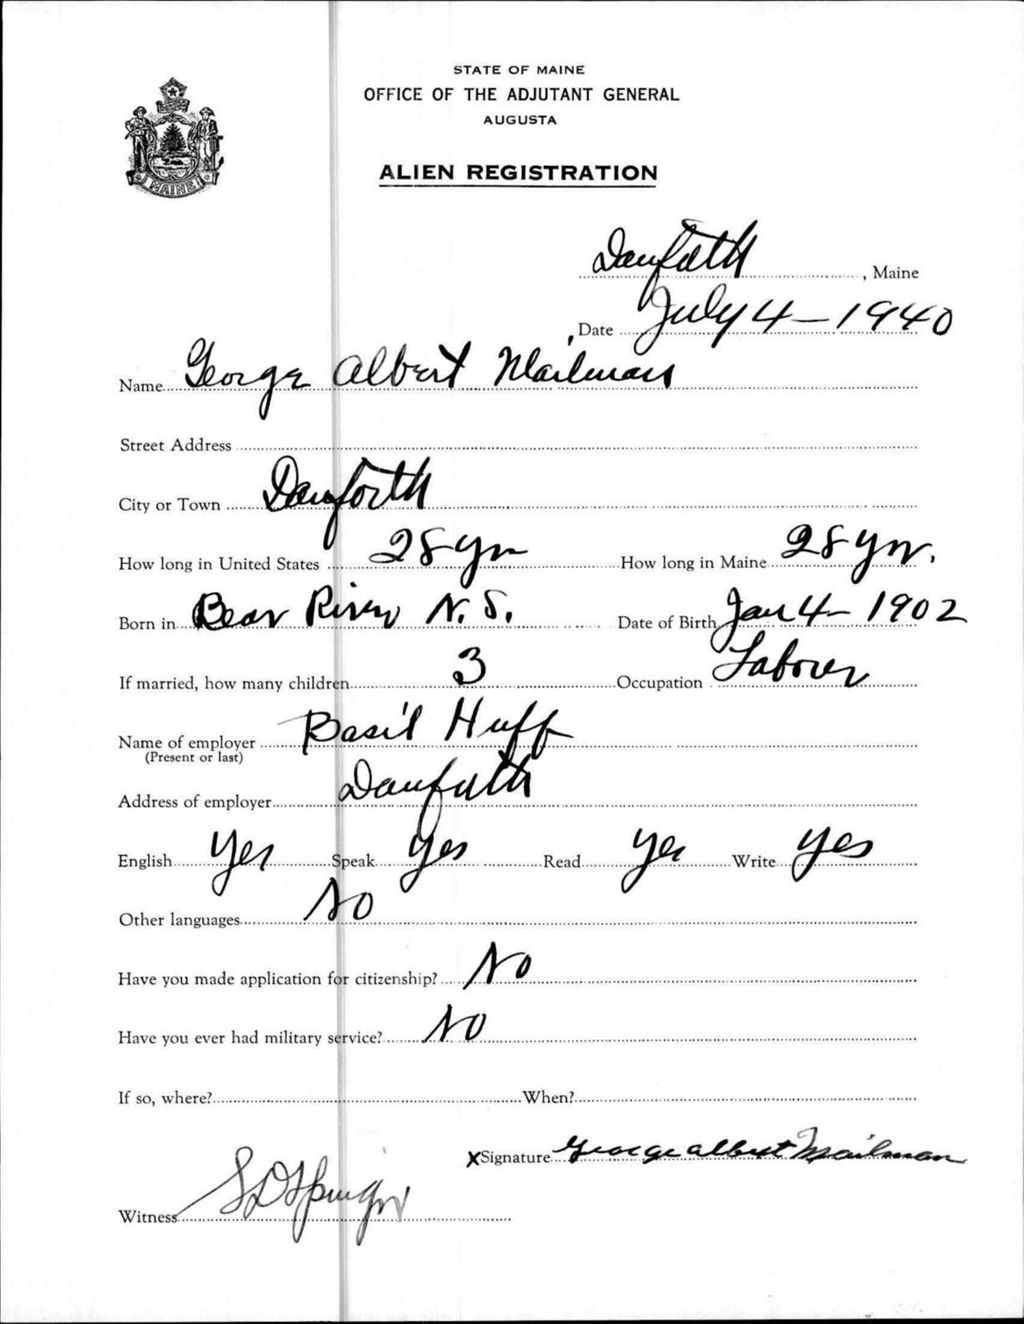 STATE OF MAINE
OFFICE OF THE ADJUTANT GENERAL
AUGUSTA
ALIEN REGISTRATION
MAINE
Danforth, Maine
Date July 4-1940
Name George Albert Mailman
Street Address
City or Town Danforth
How long in United States 28 yrs How long in Maine 28 yrs.
Born in Bear River N.S. Date of Birth Jan 4-1902
If married, how many children 3 Occupation Laborer
Name of employer Basil Huff
(Present or last)
Address of employer Danforth
English Yes Speak Yes Read Yes Write Yes
Other languages No
Have you made application for citizenship? No
Have you ever had military service? No
If so, where? When?
X Signature George Albert Mailman
Witness